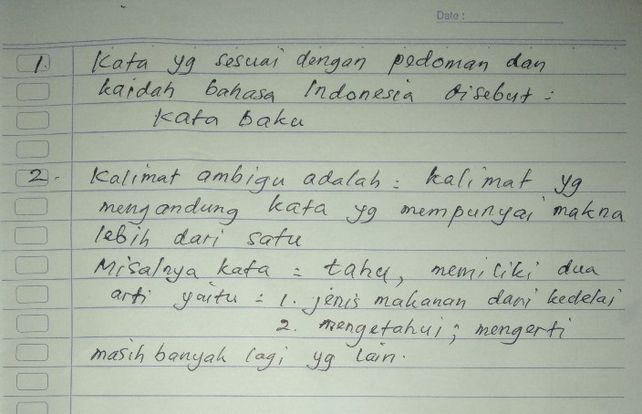 Date :
1. Kata yg sesuai dengan pedoman dan
kaidah bahasa Indonesia disebut :
Kata baku
2. Kalimat ambigu adalah : kalimat yg
mengandung kata yg mempunyai makna
lebih dari satu
Misalnya kata : tahu, memiliki dua
arti yaitu : 1. jenis makanan dari kedelai
2. mengetahui ; mengerti
masih banyak lagi yg lain.